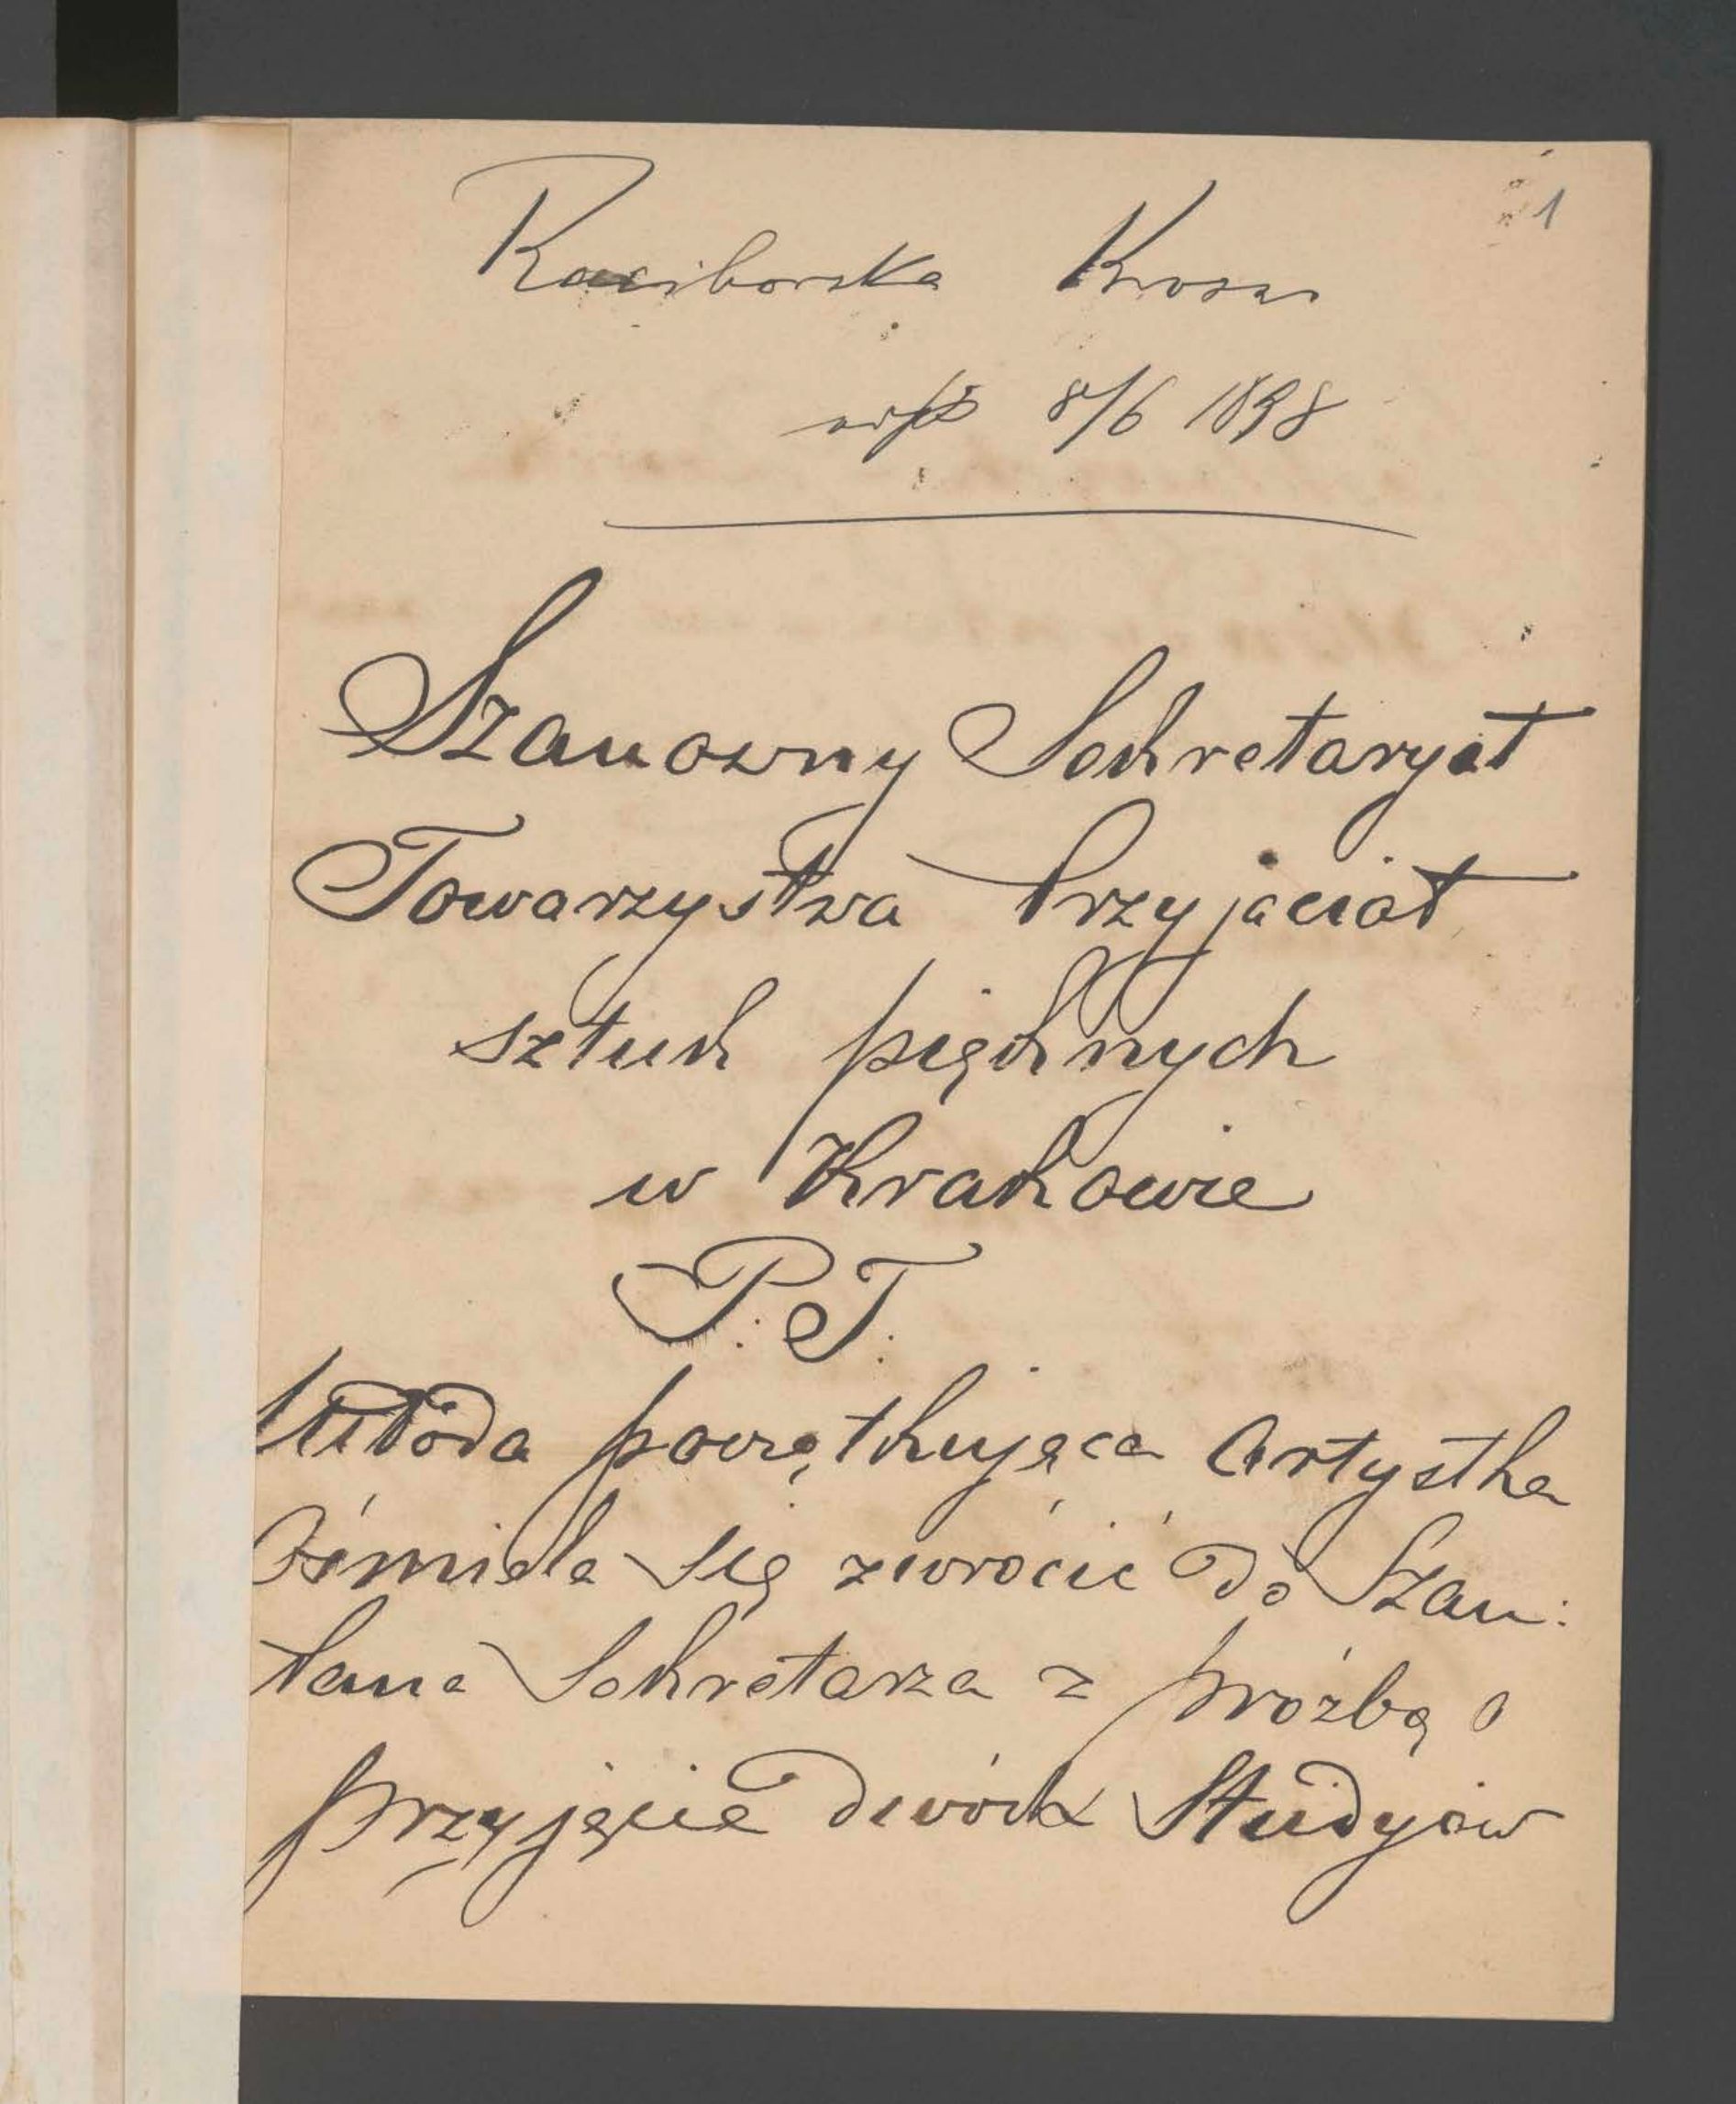 1
Raciborska
8/6 1898
Szanowny Sekretaryat
Towarzystwa Przyjaciół
sztuk pięknych
w Krakowie
P. T.
Młoda początkująca Artystka
Ośmiela się zwrócić do Szan:
Pana Sekretarza z prożbą o
przyjęcie dwóch Studyów